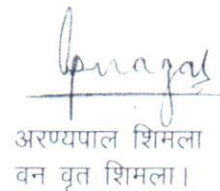 अरण्यपाल शिमला
वन वृत शिमला।